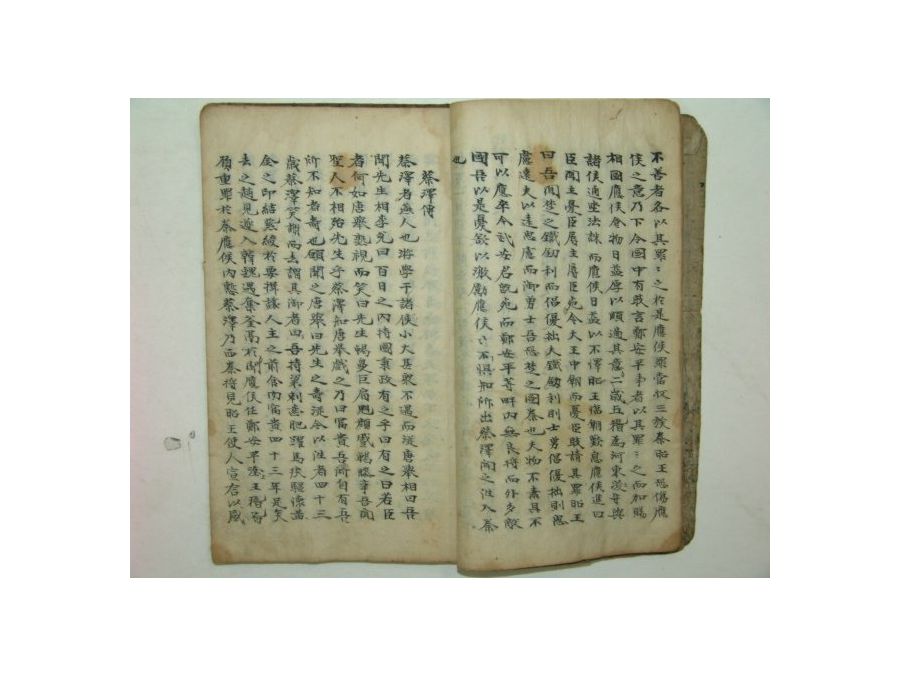 不善者各以其罪〻之於是應侯罪當收三族秦昭王恐傷應
侯之意乃下令國中有敢言鄭安平事者以其罪〻之而加賜
相國應侯食物日益厚以順適其意二歲王稽爲河東守與
諸侯通坐法誅而應侯日益以不懌昭王臨朝歎息應侯進曰
臣聞主憂臣辱主辱臣死今大王中朝而憂臣敢請其罪昭王
曰吾聞楚之鐵劒利而倡優拙夫鐵劒利則士勇倡優拙則思
慮遠夫以遠思慮而御勇士吾恐楚之圖秦也夫物不素具不
可以應卒今武安君旣死而鄭安平等畔內無良將而外多敵
國吾以是憂欲以激勵應侯〻不懼知所出蔡澤聞之往入秦
也
蔡澤傳
蔡澤者燕人也游學干諸侯小大甚衆不遇而從唐舉相曰吾
聞先生相李兌曰百日之內持國秉政有之乎曰有之曰若臣
者何如唐舉孰視而笑曰先生曷鼻巨肩魋顏蹙齃膝攣吾聞
聖人不相殆先生乎蔡澤知唐舉戲之乃曰富貴吾所自有吾
所不知者壽也願聞之唐舉曰先生之壽從今以往者四十三
歲蔡澤笑謝而去謂其御者曰吾持粱刺齒肥躍馬疾驅懷黃
金之印結紫綬於要揖讓人主之前食肉富貴四十三年足矣
去之趙見逐入韓魏遇奪釜鬲於塗應侯任鄭安平王稽皆
負重罪於秦應侯內慙蔡澤乃西入秦將見昭王使人宣言以感